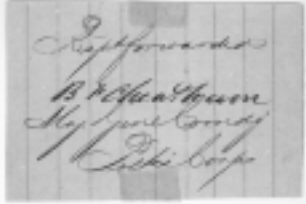 Respt forwarded
B F Cheatham
Maj Genl Comdg
Polks Corps